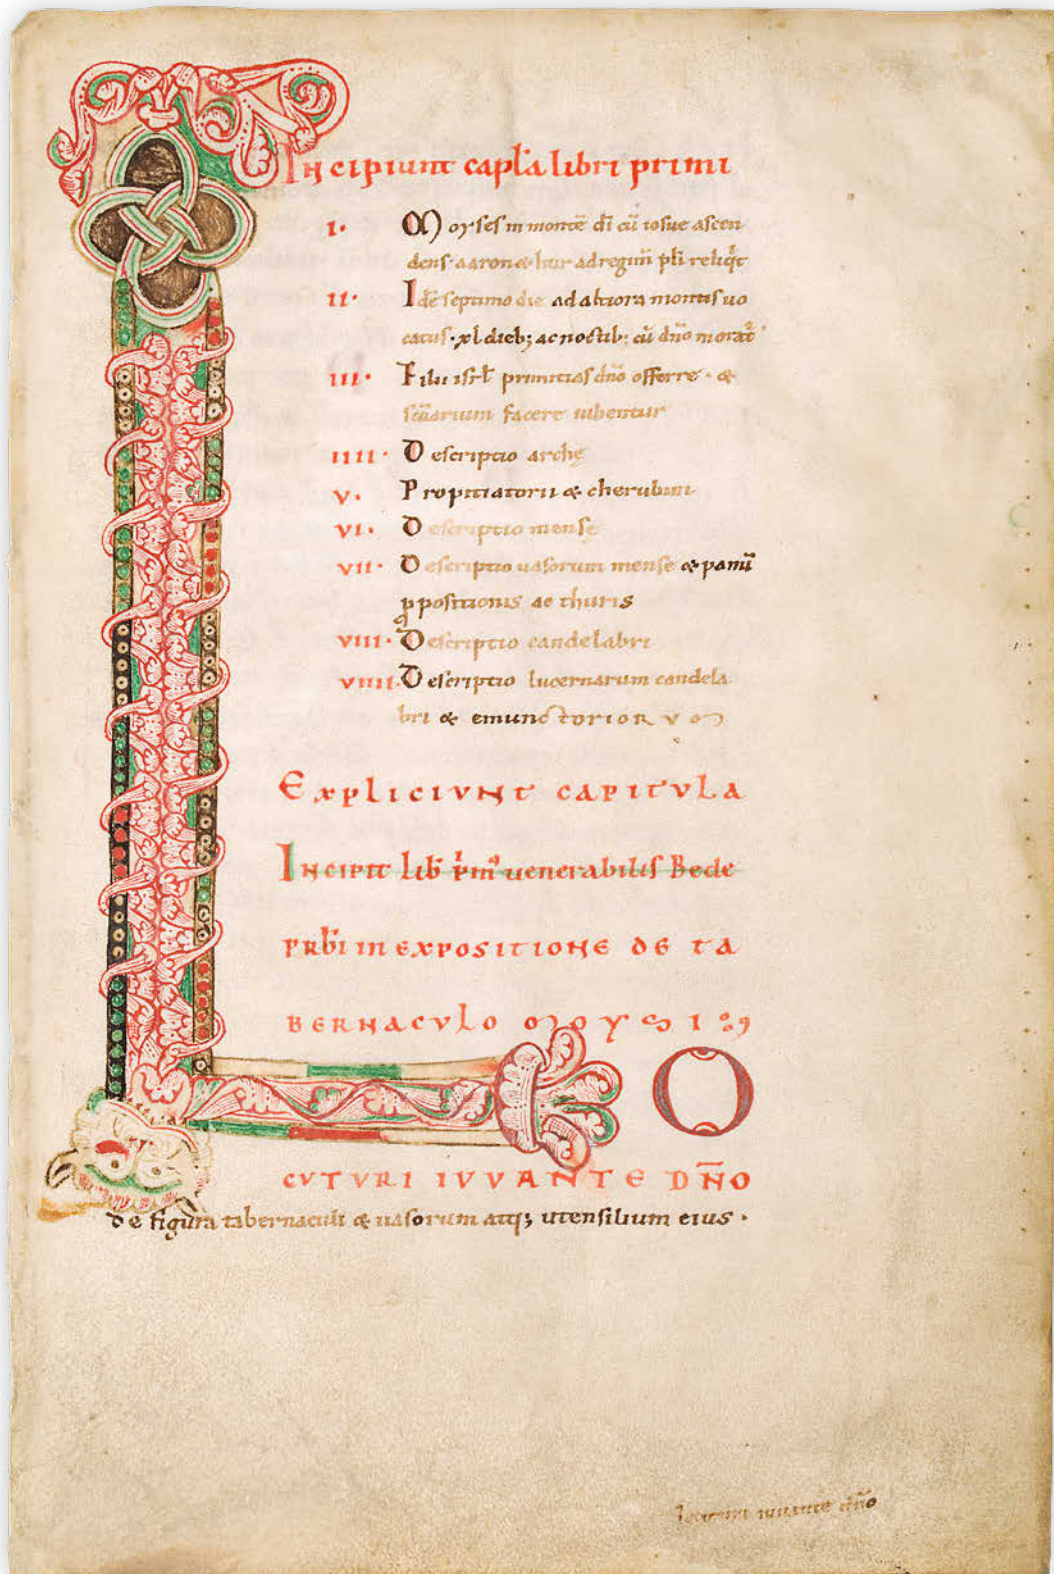 Incipiunt capl̄a libri primi
I· Moyses in montē dī cū iosue ascen
dens· aaron & hur ad regimē pl̄i reliq̇t
II· Idē septimo die ad altiora montis uo
catus· xl dieb; ac noctib; cū dn̄o morat̄
III· Filii isrl̄ primitias dn̄o offerre· &
sc̄uarium facere iubentur
IIII· Descriptio archę
V· Propitiatorii & cherubim
VI· Descriptio mensę
VII· Descriptio uasorum mensę & panū
ꝓpositionis ac thuris
VIII· Descriptio candelabri
VIIII· Descriptio lucernarum candela
bri & emunctoriorum
Expliciunt capitula
Incipit lib̄ p̄m' uenerabilis Bede
prb̄i in expositione de ta
bernaculo moysi
LO
cuturi iuvante dn̄o
de figura tabernaculi & uasorum atq; utensilium eius·
Locuturi iuuante dn̄o